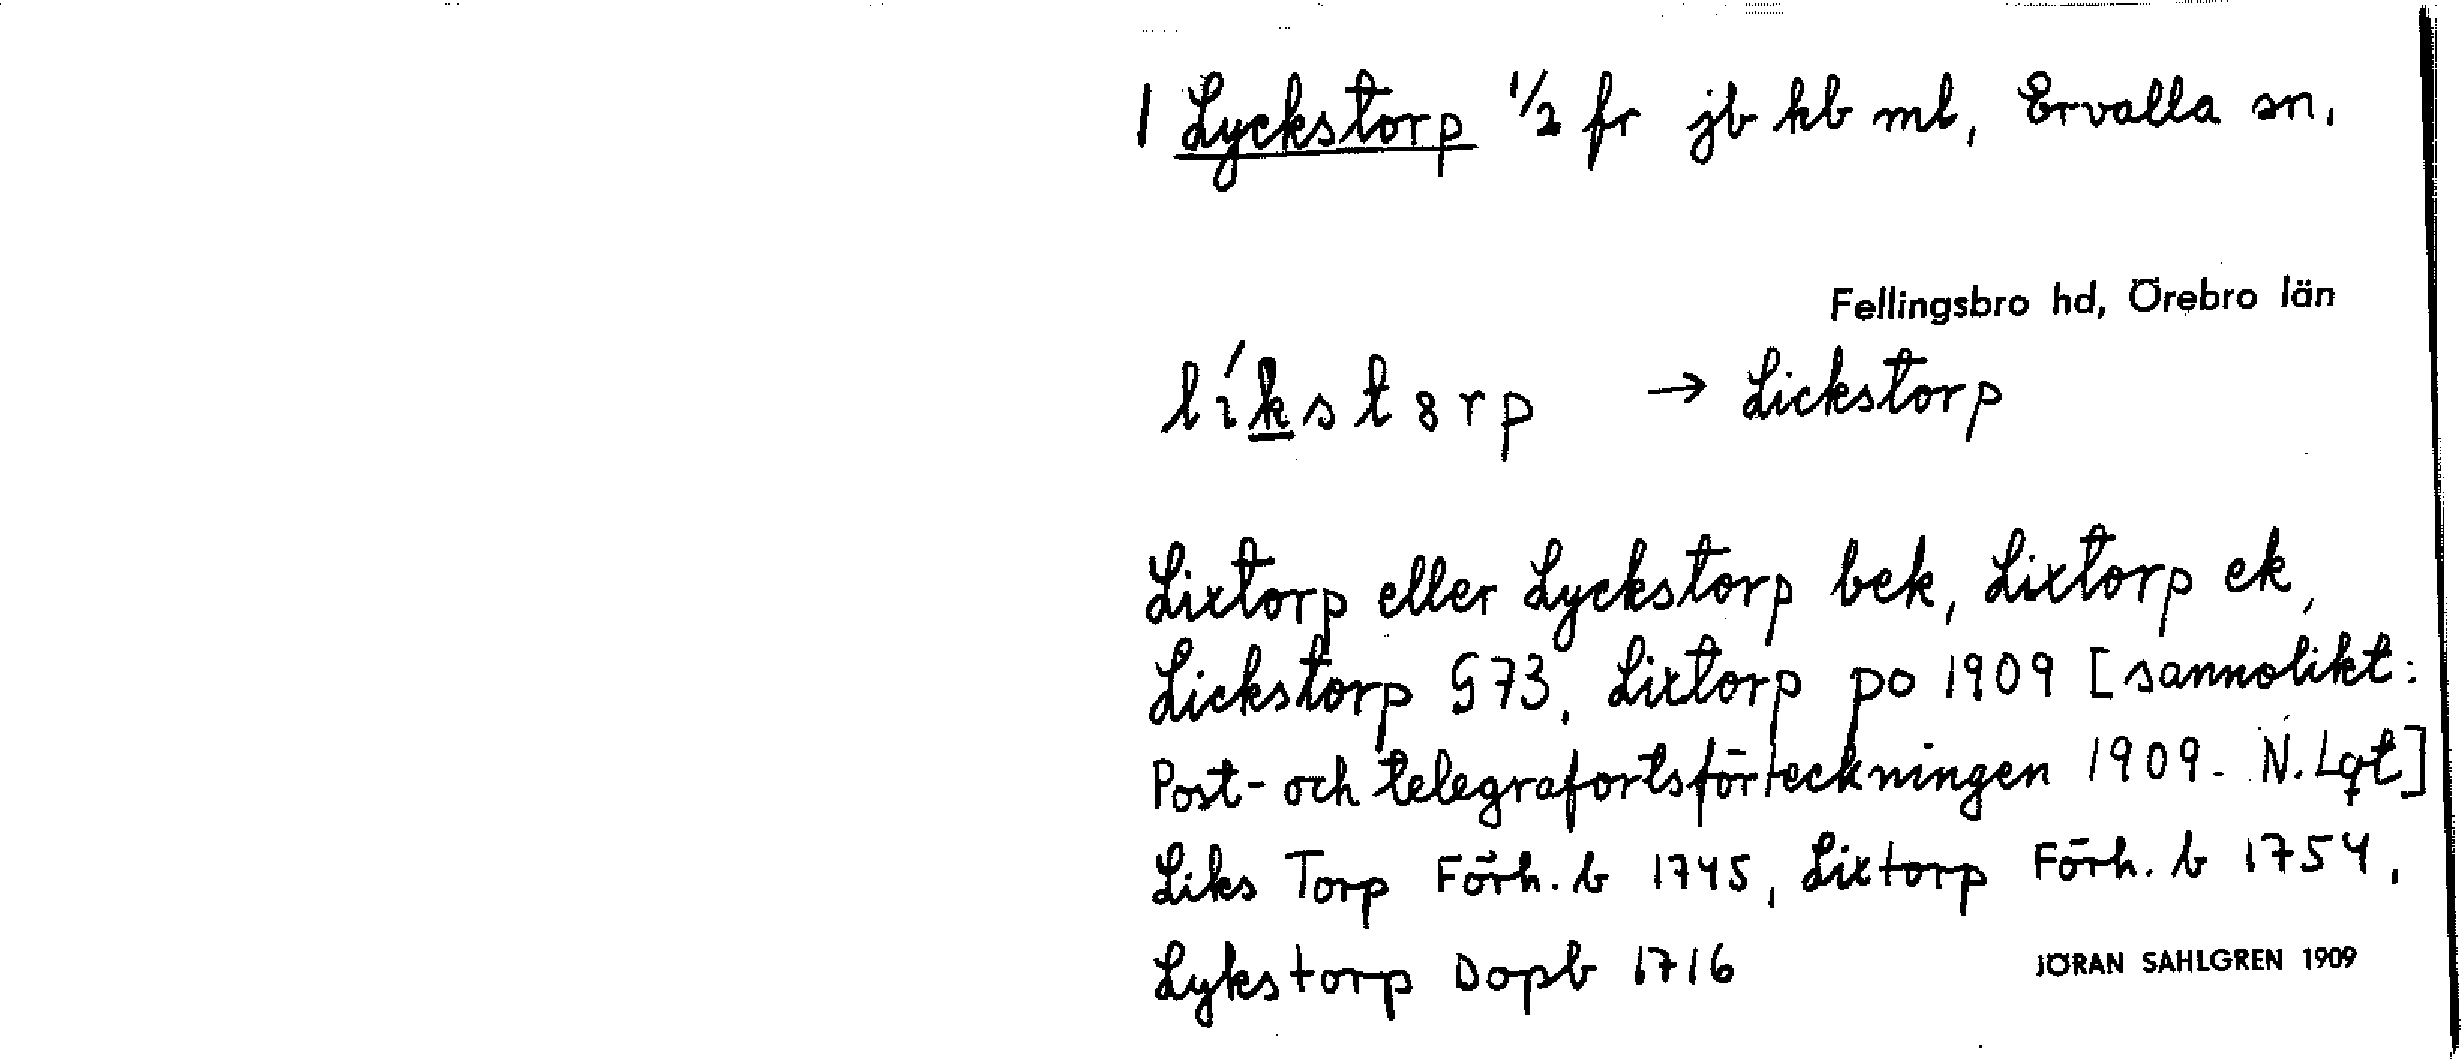 1 Lyckstorp 1/2 fr jb hb ml, Ervalla sn,
Fellingsbro hd, Örebro län
líkst8rp → Lickstorp
Lixtorp eller Lyckstorp bek, Lixtorp ek,
Lickstorp G73, Lixtorp po 1909 [sannolikt:
Post- och telegrafortsförteckningen 1909. N. Lqt]
Liks Torp Förh. b 1745, Lixtorp Förh. b 1754,
Lykstorp Dopb 1716
JÖRAN SAHLGREN 1909